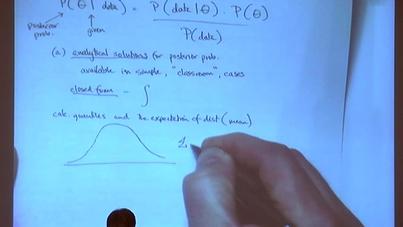 P(θ | data) = P(data | θ) · P(θ)
P(data)
posterior prob.
given
(a) analytical solutions for posterior prob.
available in simple, "classroom", cases
closed form - ∫
calc. quantiles and the expectation of dist (mean)